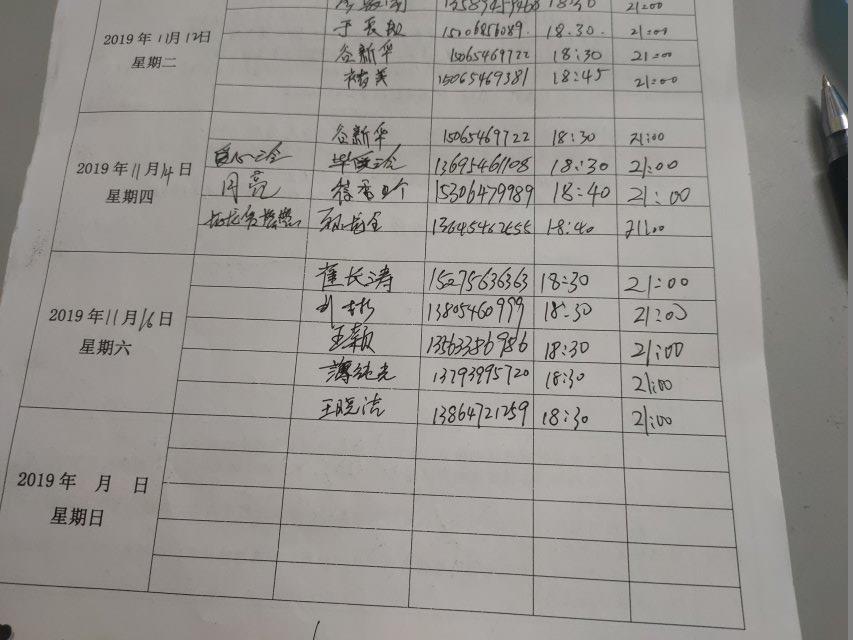 18:30 21:00
15206856089. 18.30. 21:00
2019年11月12日 谷新华 15065469722 18:30 21:00
星期二 15065469381 18:45 21:00
谷新华 15065469722 18:30 21:00
2019年11月14日 13695461108 18:30 21:00
星期四 周亮 15306479989 18:40 21:00
13645462655 18:40 21:00
崔长涛 15275636363 18:30 21:00
2019年11月16日 刘彬 13805460999 18:30 21:00
星期六 王颖 13563386986 18:30 21:00
薄纯光 13793995720 18:30 21:00
王晓洁 13864721259 18:30 21:00
2019年 月 日
星期日